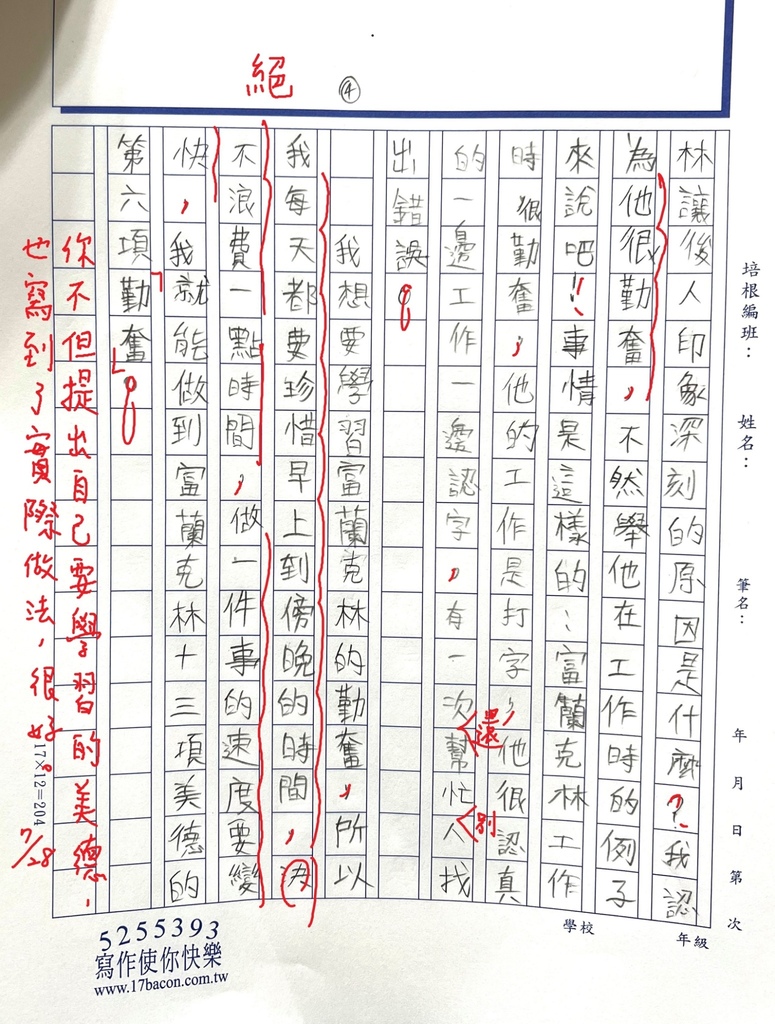 絕
④
培根編班：
姓名：
筆名：
年 月 日 第 次
學校
年級
林讓後人印象深刻的原因是什麼？我認
為他很勤奮，不然舉他在工作時的例子
來說吧！事情是這樣的：富蘭克林工作
時很勤奮，他的工作是打字，他很認真
的一邊工作一邊認字，有一次還幫忙別人找
出錯誤。
我想要學習富蘭克林的勤奮，所以
我每天都要珍惜早上到傍晚的時間，決
不浪費一點時間，做一件事的速度要變
快，我就能做到富蘭克林十三項美德的
第六項「勤奮」。
你不但提出自己要學習的美德，
也寫到了實際做法，很好。
7/28
17×12=204
5255393
寫作使你快樂
www.17bacon.com.tw